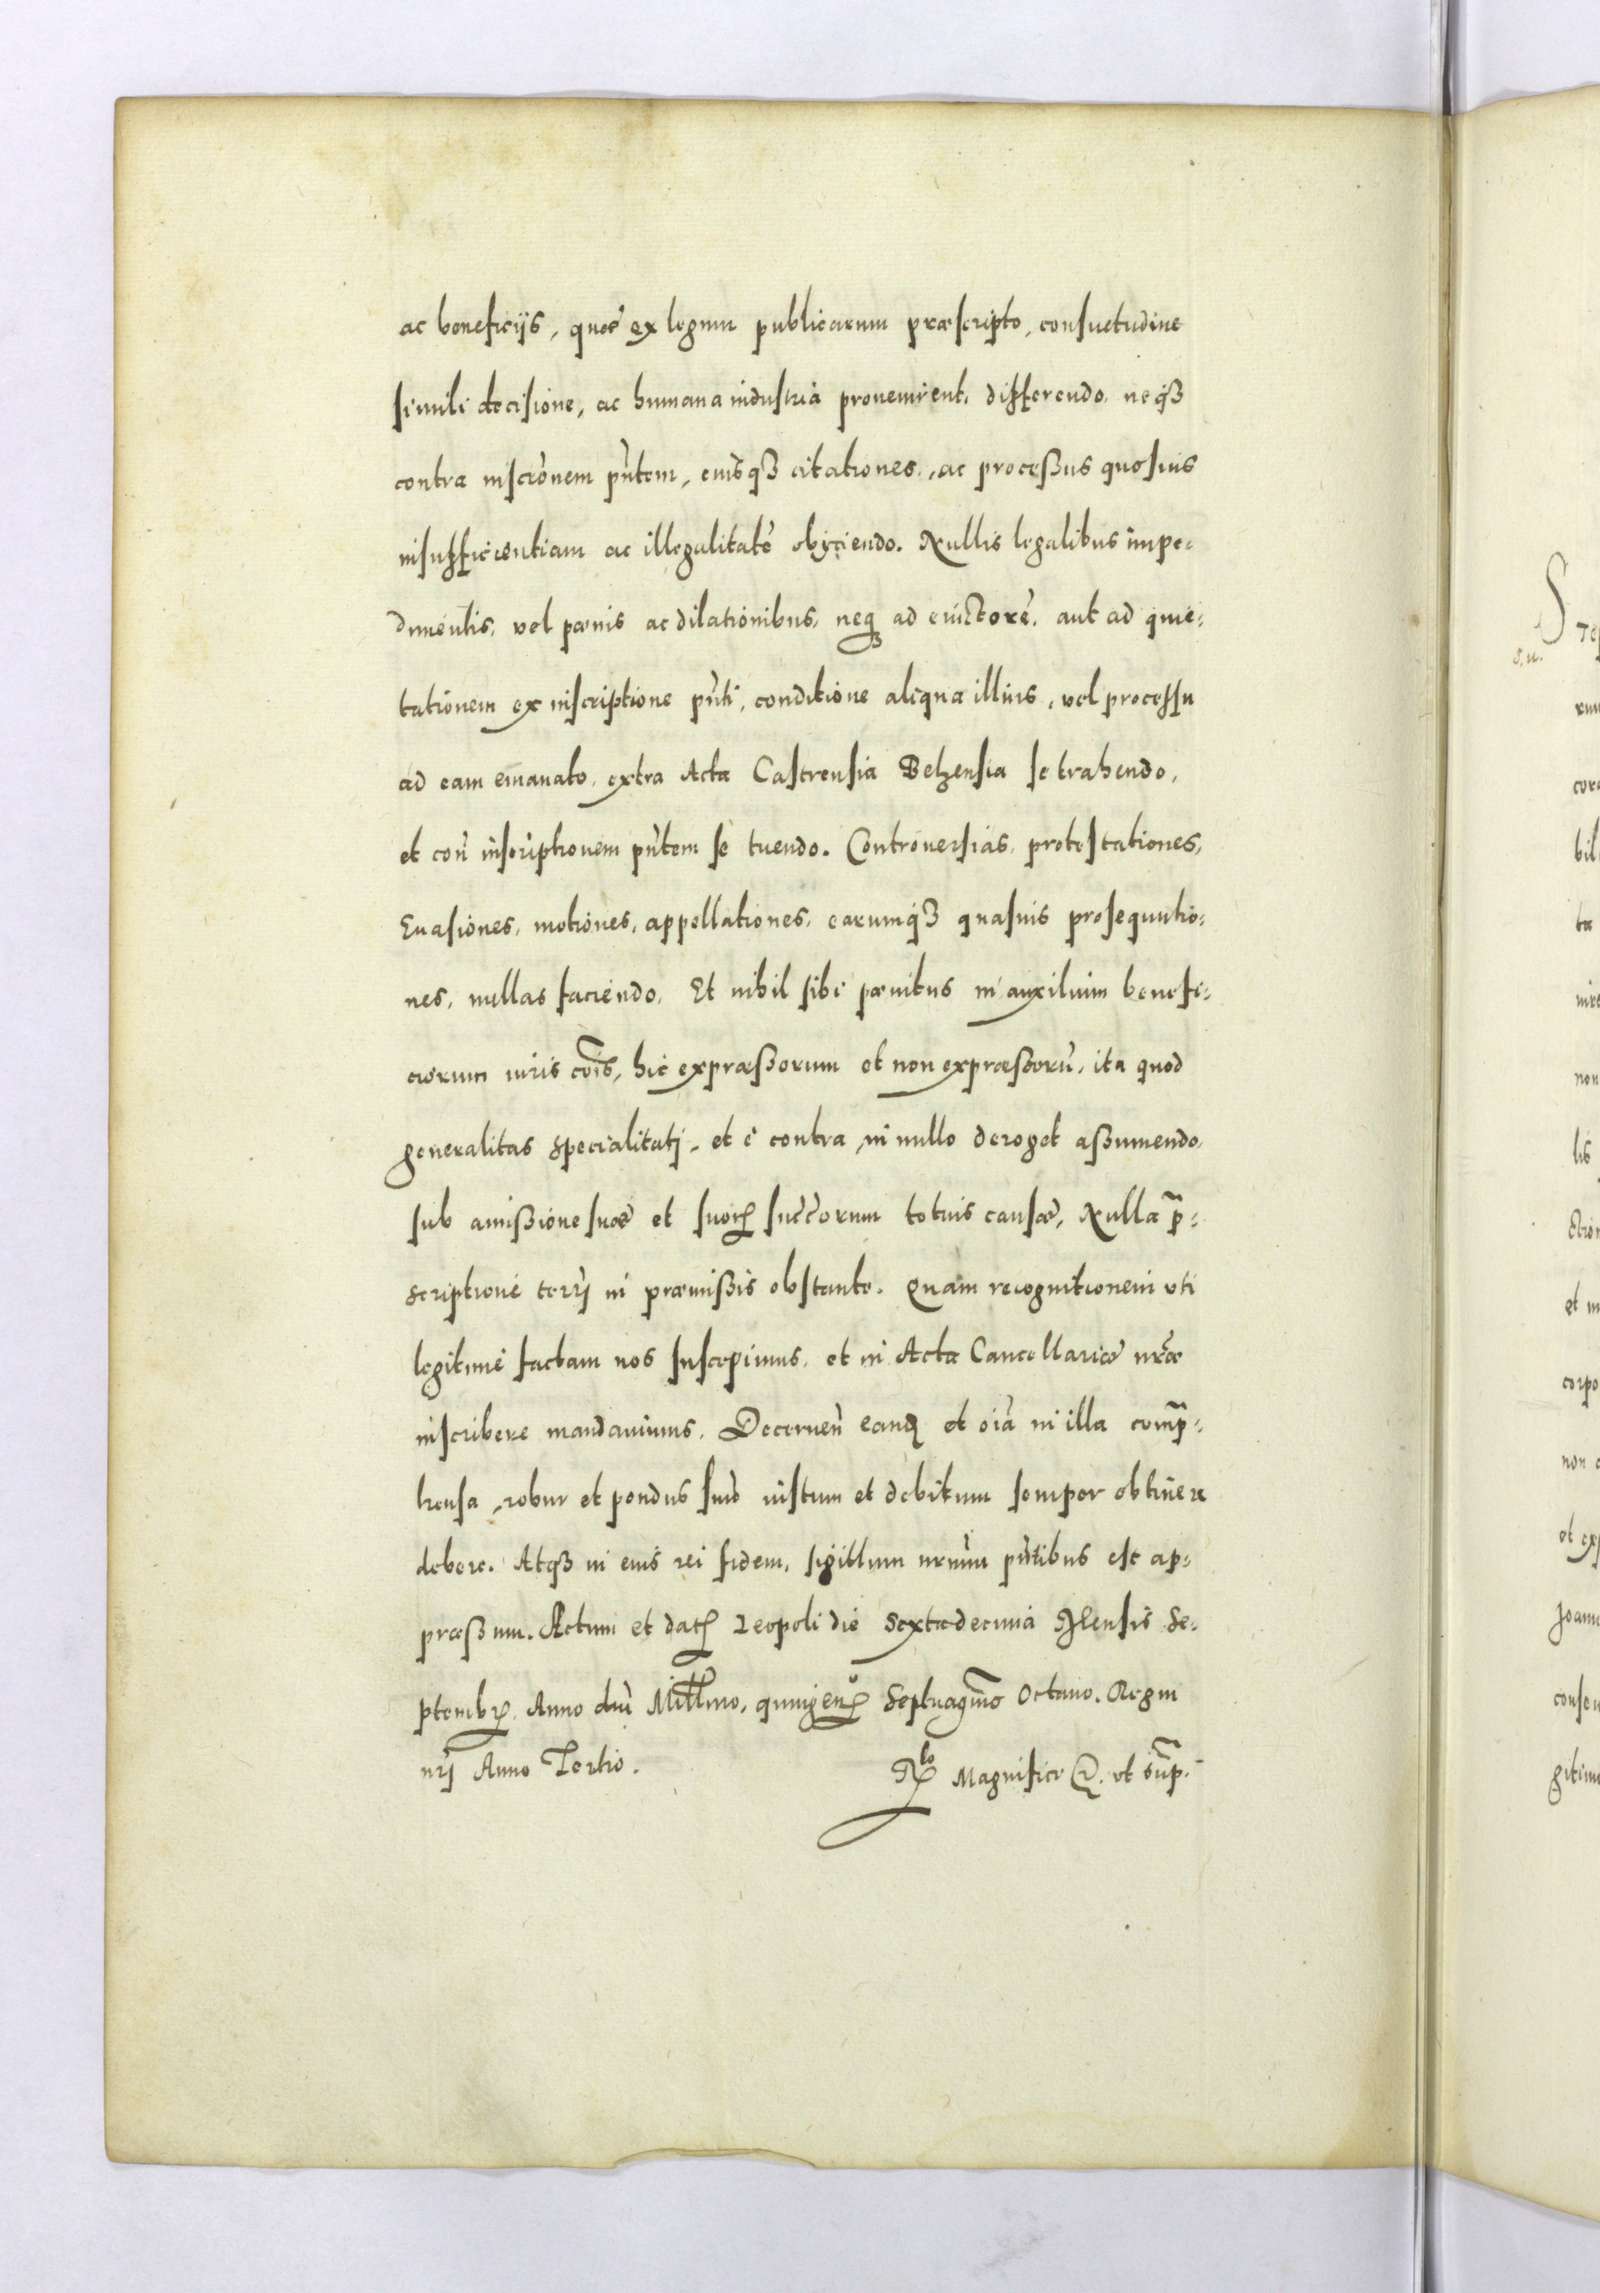 ac beneficijs, quæ ex legum publicarum præscripto, consuetudine
simili decisione, ac humana industria provenirent, differendo, neqȝ
contra inscrõnem pñtem, eiusqȝ citationes, ac processus quosuis
insufficientiam ac illegalitatē obijciendo. Nullis legalibus impe=
dimentis, vel pænis ac dilationibus, neqȝ ad euictorē, aut ad quie=
tationem ex inscriptione pñti, conditione aliqua illius, vel processu
ad eam emanato, extra Acta Castrensia Belzensia se trahendo,
et coñ inscriptionem pñtem se tuendo. Controuersias, protestationes,
Euasiones, motiones, appellationes, earumqȝ quasuis prosequutio=
nes, nullas faciendo. Et nihil sibi pænitus in auxilium benefi=
ciorum iuris cõis, hic expræssorum et non expræssorũ, ita quod
generalitas specialitatj, et è contra, in nullo deroget assumendo,
sub amissione suæ et suoꝝ succorum totius causæ, Nulla p̃=
scriptione terrj in præmissis obstante. Quam recognitionem vti
legitimè factam nos suscepimus, et in Acta Cancellariæ nr̃æ
inscribere mandauimus. Decernen̄ eand et oĩa in illa comp̃=
hensa, robur et pondus suũ iustum et debitum semper obtinere
debere. Atqȝ in eius rei fidem, sigillum nrũm pñtibus est ap=
præssum. Actum et datꝝ Leopoli die Sextadecima Mensis Se=
ptembꝝ. Anno dñi Millmo, quingenꝝ Septuagmo Octauo. Regni
nrj Anno Tertio.
Rlo Magnifici &. vt sup̃.
S
s.u.